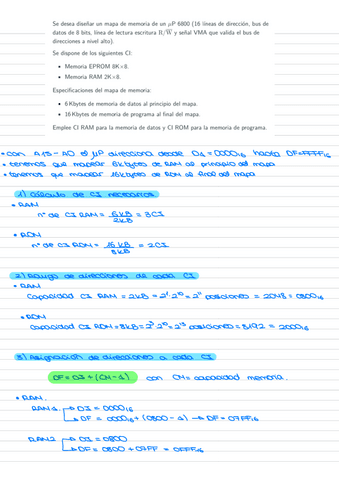 Se desea diseñar un mapa de memoria de un μP 6800 (16 líneas de dirección, bus de
datos de 8 bits, línea de lectura escritura R/W̅ y señal VMA que valida el bus de
direcciones a nivel alto).
Se dispone de los siguientes CI:
• Memoria EPROM 8K×8.
• Memoria RAM 2K×8.
Especificaciones del mapa de memoria:
• 6 Kbytes de memoria de datos al principio del mapa.
• 16 Kbytes de memoria de programa al final del mapa.
Emplee CI RAM para la memoria de datos y CI ROM para la memoria de programa.
• con A15-A0 el μP direcciona desde 0000₁₆ hasta DF=FFFF₁₆
• tenemos que mapear 6kbytes de RAM al principio del mapa
• tenemos que mapear 16kbytes de ROM al final del mapa
1) Cálculo de CI necesarios
• RAM
nº de CI RAM = 6kB / 2kB = 3CI
• ROM
nº de CI ROM = 16 kB / 8kB = 2CI
2) Rango de direcciones de cada CI
• RAM
Capacidad CI RAM = 2kB = 2¹·2¹⁰ = 2¹¹ posiciones = 2048 = 0800₁₆
• ROM
Capacidad CI ROM = 8kB = 2³·2¹⁰ = 2¹³ posiciones = 8192 = 2000₁₆
3) Asignación de direcciones a cada CI
DF = DI + (CM-1) con CM = capacidad memoria.
• RAM.
RAM1 → DI = 0000₁₆
→ DF = 0000₁₆ + (0800 - 1) → DF = 07FF₁₆
RAM2 → DI = 0800
→ DF = 0800 + 07FF = 0FFF₁₆